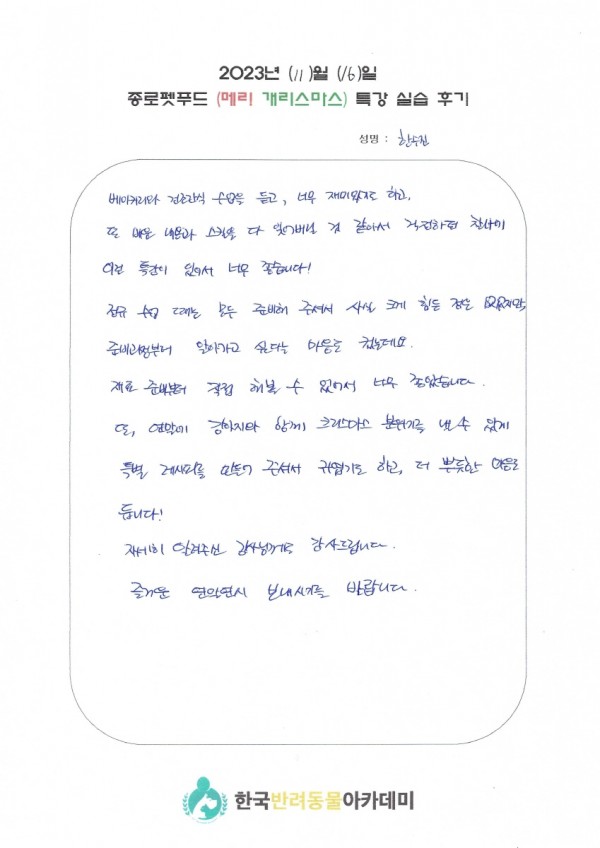 2023년 (11)월 (16)일
종로펫푸드 (메리 개리스마스) 특강 실습 후기
성명 : 한수진
베이커리와 건조간식 수업을 듣고, 너무 재미있기도 하고,
또 배운 내용과 스킬을 다 잊어버릴 것 같아서 걱정하던 찰나에
이런 특강이 있어서 너무 좋습니다!
정규 수업 때는 모두 준비해 주셔서 사실 크게 힘든 점은 없었지만,
준비과정부터 알아가고 싶다는 마음을 했는데요.
재료 준비부터 직접 해볼 수 있어서 너무 좋았습니다.
또, 연말에 강아지와 함께 크리스마스 분위기를 낼 수 있게
특별 레시피를 만들어 주셔서 귀엽기도 하고, 더 뿌듯한 마음도
듭니다!
자세히 알려주신 강사님께도 감사드립니다.
즐거운 연말연시 보내시기를 바랍니다.
한국반려동물아카데미